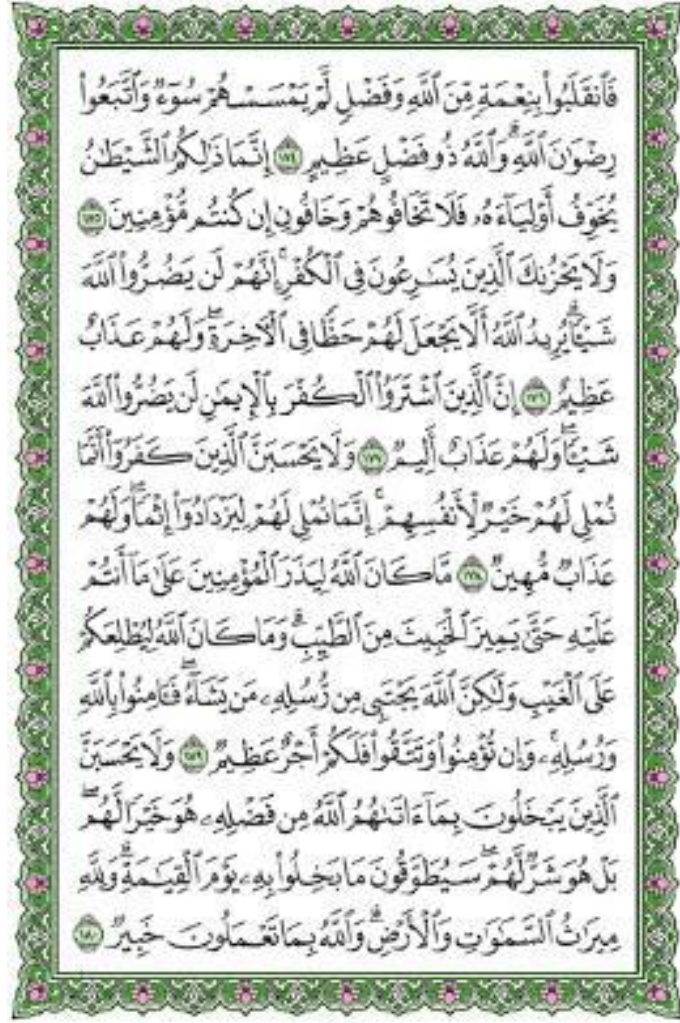 فَٱنقَلَبُوا۟ بِنِعْمَةٍ مِّنَ ٱللَّهِ وَفَضْلٍ لَّمْ يَمْسَسْهُمْ سُوٓءٌ وَٱتَّبَعُوا۟
رِضْوَٰنَ ٱللَّهِ ۗ وَٱللَّهُ ذُو فَضْلٍ عَظِيمٍ ١٧٤ إِنَّمَا ذَٰلِكُمُ ٱلشَّيْطَٰنُ
يُخَوِّفُ أَوْلِيَآءَهُۥ فَلَا تَخَافُوهُمْ وَخَافُونِ إِن كُنتُم مُّؤْمِنِينَ ١٧٥
وَلَا يَحْزُنكَ ٱلَّذِينَ يُسَٰرِعُونَ فِى ٱلْكُفْرِ ۚ إِنَّهُمْ لَن يَضُرُّوا۟ ٱللَّهَ
شَيْـًٔا ۗ يُرِيدُ ٱللَّهُ أَلَّا يَجْعَلَ لَهُمْ حَظًّا فِى ٱلْـَٔاخِرَةِ ۖ وَلَهُمْ عَذَابٌ
عَظِيمٌ ١٧٦ إِنَّ ٱلَّذِينَ ٱشْتَرَوُا۟ ٱلْكُفْرَ بِٱلْإِيمَٰنِ لَن يَضُرُّوا۟ ٱللَّهَ
شَيْـًٔا ۖ وَلَهُمْ عَذَابٌ أَلِيمٌ ١٧٧ وَلَا يَحْسَبَنَّ ٱلَّذِينَ كَفَرُوٓا۟ أَنَّمَا
نُمْلِى لَهُمْ خَيْرٌ لِّأَنفُسِهِمْ ۚ إِنَّمَا نُمْلِى لَهُمْ لِيَزْدَادُوٓا۟ إِثْمًا ۚ وَلَهُمْ
عَذَابٌ مُّهِينٌ ١٧٨ مَّا كَانَ ٱللَّهُ لِيَذَرَ ٱلْمُؤْمِنِينَ عَلَىٰ مَآ أَنتُمْ
عَلَيْهِ حَتَّىٰ يَمِيزَ ٱلْخَبِيثَ مِنَ ٱلطَّيِّبِ ۗ وَمَا كَانَ ٱللَّهُ لِيُطْلِعَكُمْ
عَلَى ٱلْغَيْبِ وَلَٰكِنَّ ٱللَّهَ يَجْتَبِى مِن رُّسُلِهِۦ مَن يَشَآءُ ۖ فَـَٔامِنُوا۟ بِٱللَّهِ
وَرُسُلِهِۦ ۚ وَإِن تُؤْمِنُوا۟ وَتَتَّقُوا۟ فَلَكُمْ أَجْرٌ عَظِيمٌ ١٧٩ وَلَا يَحْسَبَنَّ
ٱلَّذِينَ يَبْخَلُونَ بِمَآ ءَاتَىٰهُمُ ٱللَّهُ مِن فَضْلِهِۦ هُوَ خَيْرًا لَّهُم ۖ
بَلْ هُوَ شَرٌّ لَّهُمْ ۖ سَيُطَوَّقُونَ مَا بَخِلُوا۟ بِهِۦ يَوْمَ ٱلْقِيَٰمَةِ ۗ وَلِلَّهِ
مِيرَٰثُ ٱلسَّمَٰوَٰتِ وَٱلْأَرْضِ ۗ وَٱللَّهُ بِمَا تَعْمَلُونَ خَبِيرٌ ١٨٠